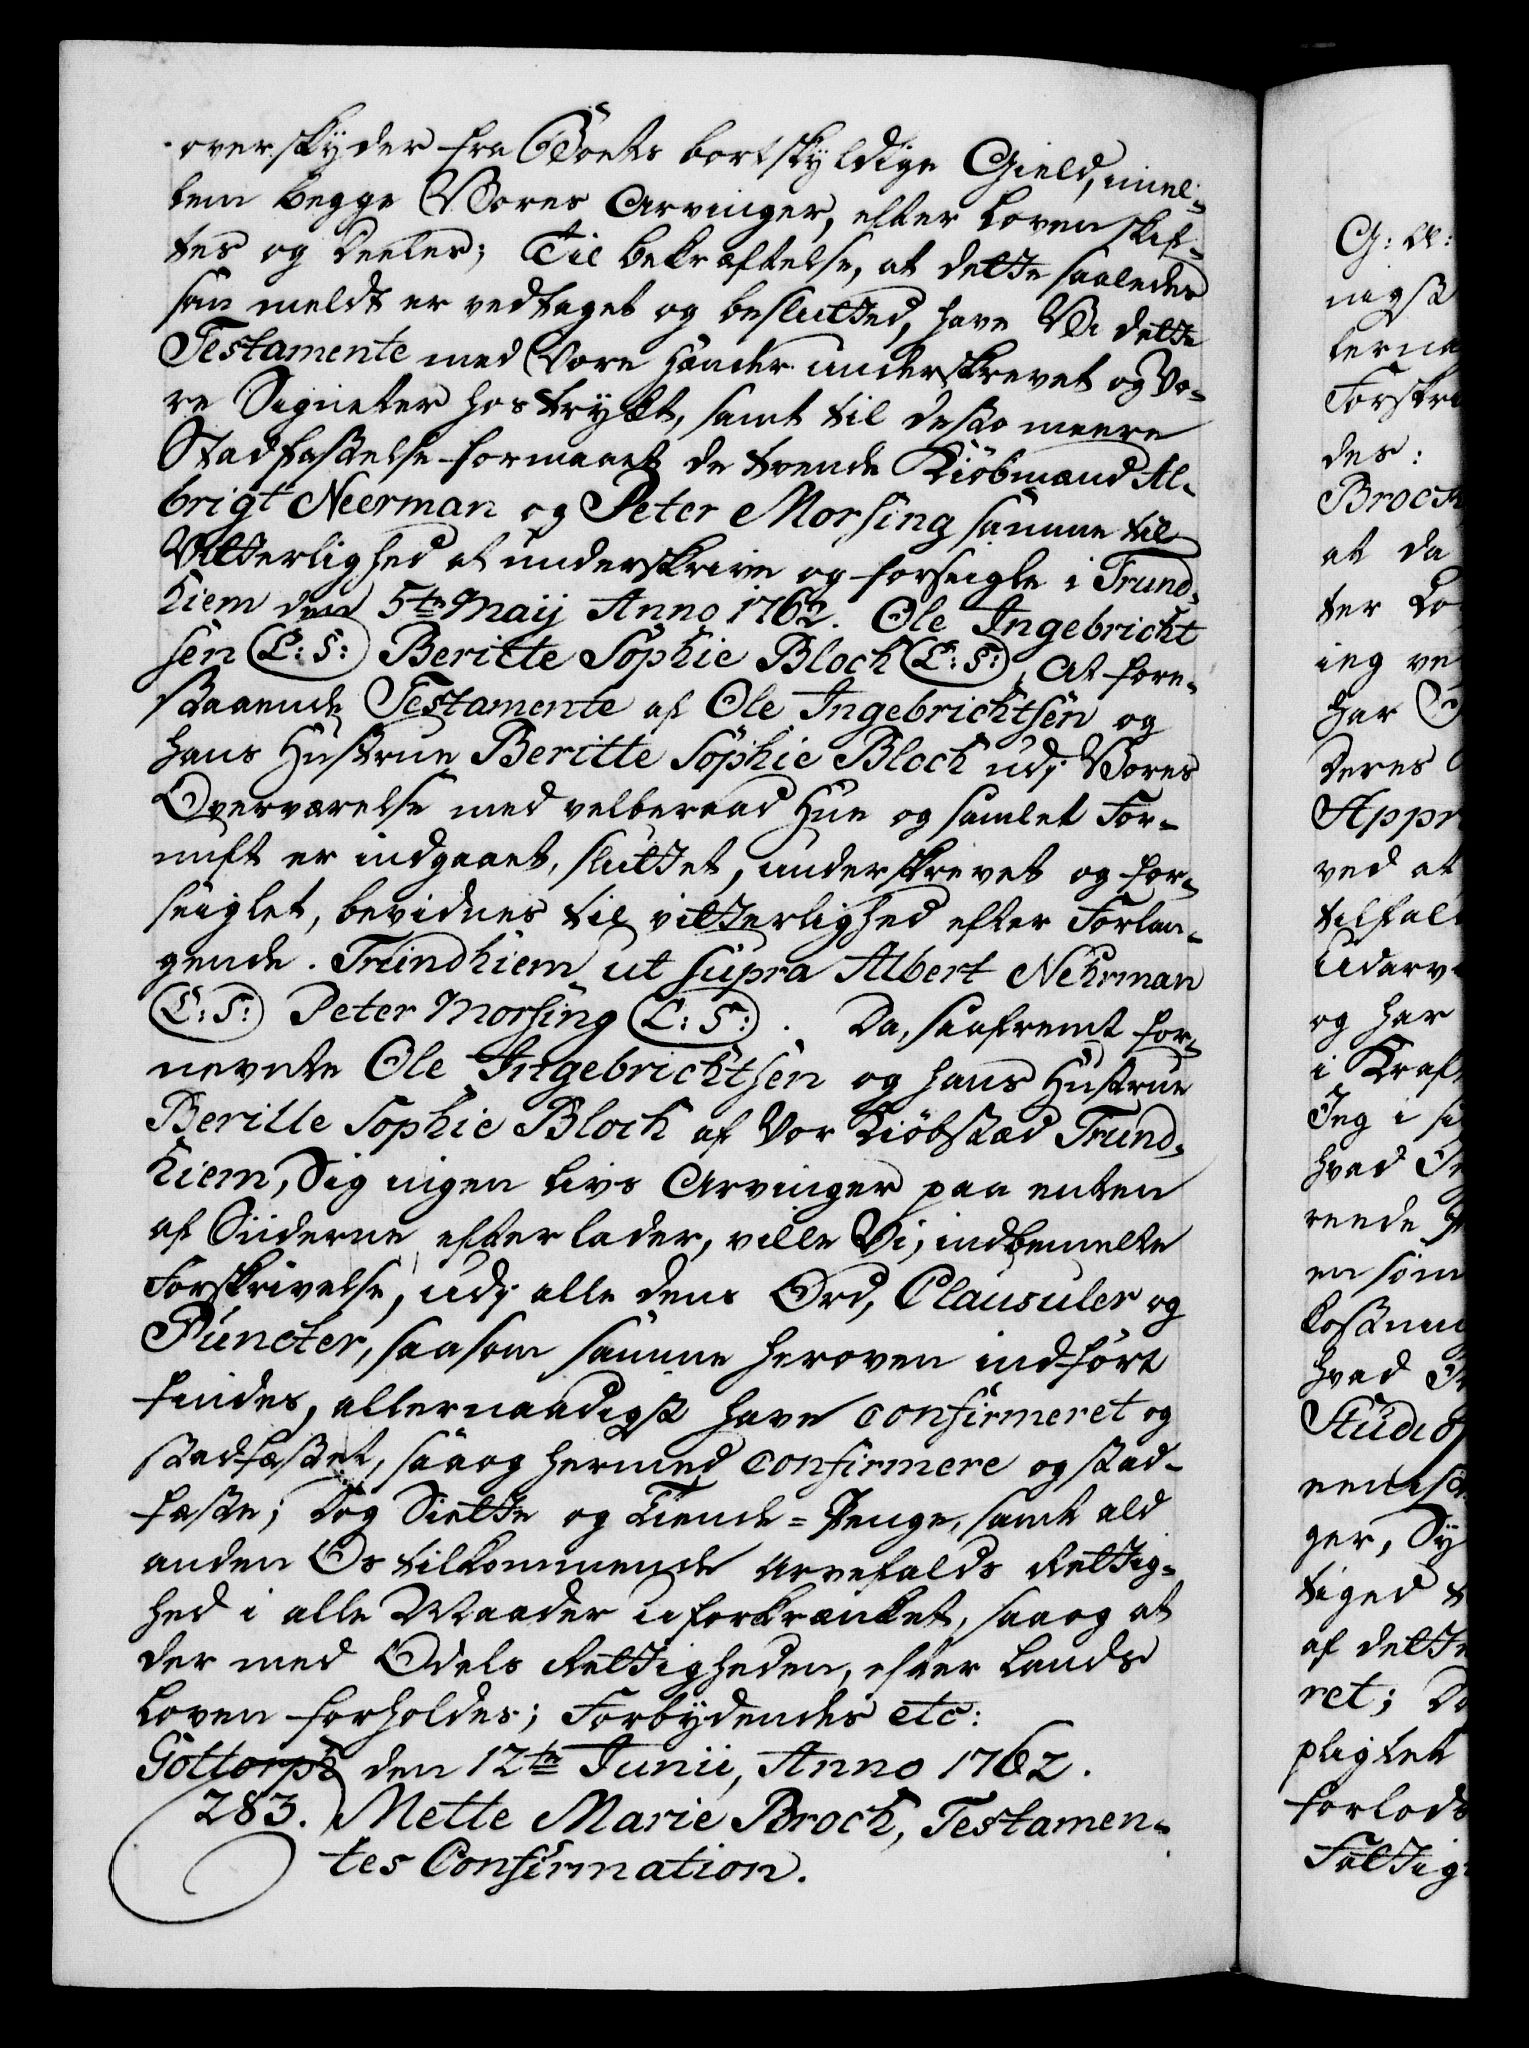 overskyder fra Boets bortskyldige Gield, imel-
lem begge Vores Arvinger, efter Loven skif-
tes og deeles; Til bekræftelse, at dette saaledes
som meldt er vedtaget og beslutted, have Vi dette
Testamente med Vore Hænder underskrevet og Vo-
re Signeter hostrykt, samt til desto meere
Stadfæstelse formaaet de tvende Kiøbmænd Al-
brigt Neerman og Peter Morsing samme til
Vitterlighed at underskrive og forseigle i Trund-
hiem den 5te Maij Anno 1762. Ole Ingebricht
sen (L:S:) Beritte Sophie Bloch (L:S:), At fore-
staaende Testamente af Ole Ingebrichtsen og
hans Hustrue Beritte Sophie Bloch udj Vores
Overværelse med velberaad Hue og samlet For-
nuft er indgaaet, sluttet, underskrevet og for-
seiglet, bevidnes til vitterlighed efter Forlan-
gende. Trundhiem ut supra Albert Nehrman
(L:S:) Peter Morsing (L:S:). Da, saafremt for-
nevnte Ole Ingebrichtsen og hans Hustrue
Beritte Sophie Bloch af Vor Kiøbstæd Trund-
hiem, Sig ingen Livs Arvinger paa enten
af Siiderne efterlader, ville Vi, indbemelte
Forskrivelse, udj alle dens Ord, Clausuler og
Puncter, saasom samme heroven indført
findes, allernaadigst have confirmeret og
stadfæstet, saa og hermed confirmere og stad-
fæste; Dog Siette og Tiende-Penge, samt ald
anden Os tilkommende Arvefalds Rettig-
hed i alle Maader uforkrænket, saa og at
der med Odels Rettigheden, efter Lands
Loven forholdes; Forbydendes etc:
Gottorph den 12te Junii, Anno 1762.
283. Mette Marie Broch, Testamen-
tes Confirmation.
G: A:
nigst
lerna
Forskri
des:
Broch
at da
ter Lo
ieg ve
har
Deres
Appr
ved at
tilfal
Udarv
og har
i Kraft
Jeg i si
hvad
reende
en som
Kostnin
hvad
Studio
ger, Sy
tiged
af dette
ret; Do
pligtet
forlods
Fattig